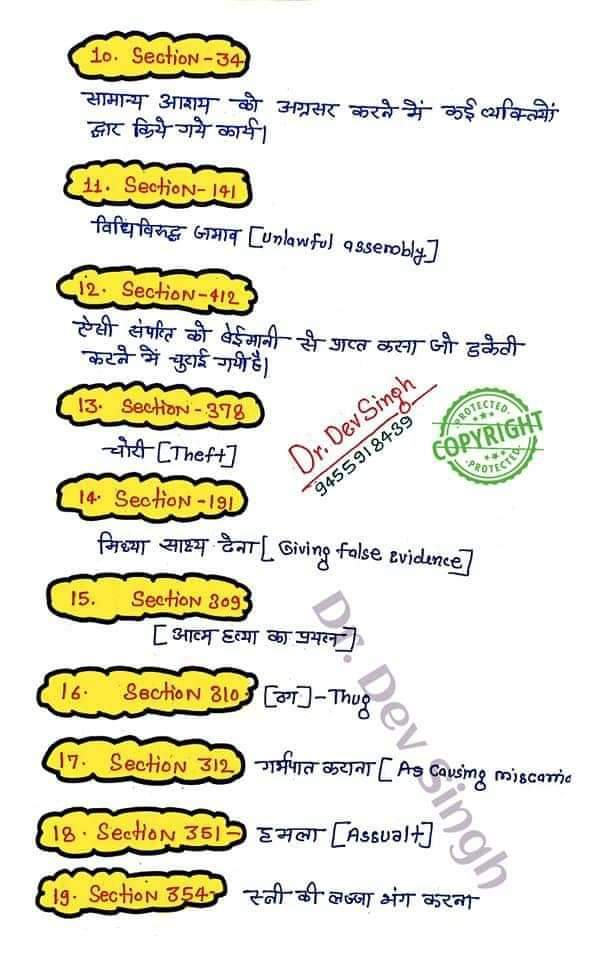 10. Section-34
सामान्य आशय को अग्रसर करने में कई व्यक्तियों
द्वार किये गये कार्य।
11. Section-141
विधिविरुद्ध जमाव [unlawful assembly]
12. Section-412
ऐसी संपत्ति को बेईमानी से प्राप्त करना जो डकैती
करने में चुराई गयी है।
13. Section-378
चोरी [Theft]
Dr. Dev Singh
9455918439
PROTECTED
COPYRIGHT
PROTECTED
14. Section-191
मिथ्या साक्ष्य देना [Giving false evidence]
15. Section 309
[आत्म हत्या का प्रयत्न]
16. Section 310 [ठग]-Thug
17. Section 312 गर्भपात कराना [As Causing miscarric
18. Section 351- हमला [Assualt]
19. Section 354- स्त्री की लज्जा भंग करना
Dr. Dev Singh